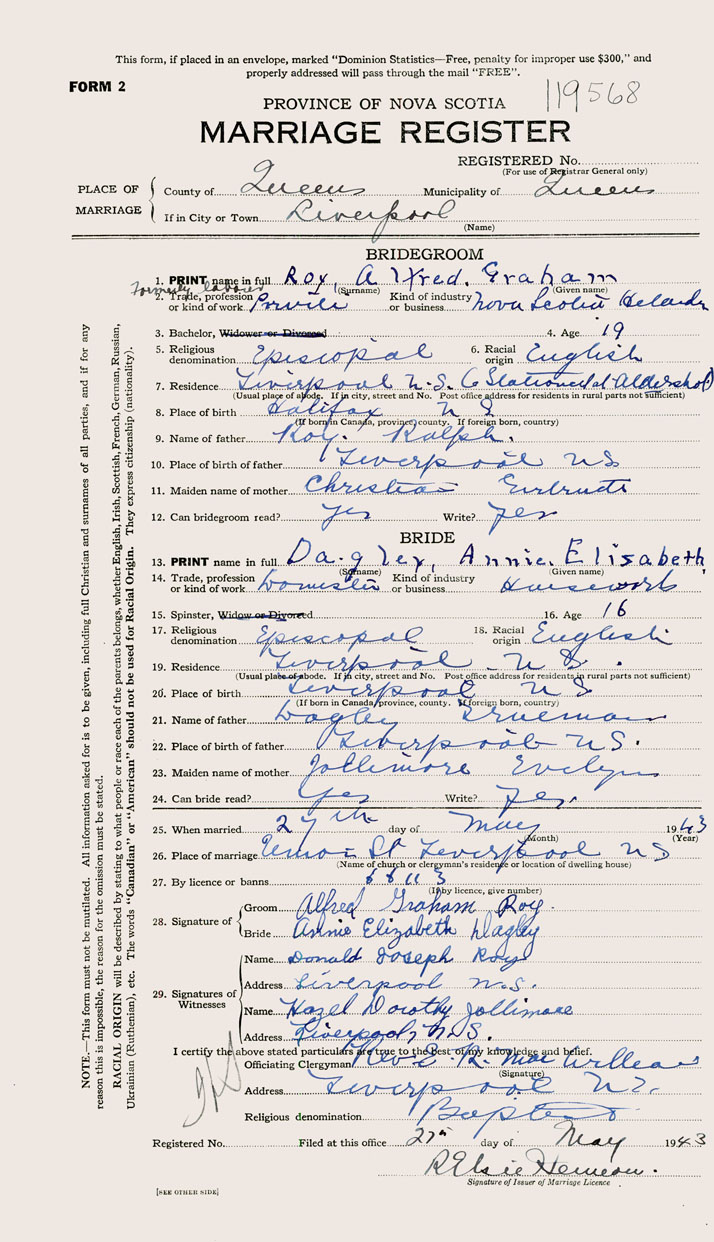 This form, if placed in an envelope, marked "Dominion Statistics—Free, penalty for improper use $300," and
properly addressed will pass through the mail "FREE".
FORM 2
119568
PROVINCE OF NOVA SCOTIA
MARRIAGE REGISTER
REGISTERED No.
(For use of Registrar General only)
PLACE OF MARRIAGE
County of Queens Municipality of Queens
If in City or Town Liverpool
(Name)
BRIDEGROOM
1. PRINT name in full Roy, Alfred, Graham
(Surname) (Given name)
formerly labourer
2. Trade, profession or kind of work Private Kind of industry or business Nova Scotia
3. Bachelor, Widower or Divorced 4. Age 19
5. Religious denomination Episcopal 6. Racial origin English
7. Residence Liverpool N.S. (Stationed at Aldershot)
(Usual place of abode. If in city, street and No. Post office address for residents in rural parts not sufficient)
8. Place of birth Halifax N S
(If born in Canada, province, county. If foreign born, country)
9. Name of father Roy. Ralph.
10. Place of birth of father Liverpool NS
11. Maiden name of mother Christian Gertrude
12. Can bridegroom read? yes Write? yes
BRIDE
13. PRINT name in full Dagley, Annie Elisabeth
(Surname) (Given name)
14. Trade, profession or kind of work Domestic Kind of industry or business Housework
15. Spinster, Widow or Divorced 16. Age 16
17. Religious denomination Episcopal 18. Racial origin English
19. Residence Liverpool N S.
(Usual place of abode. If in city, street and No. Post office address for residents in rural parts not sufficient)
20. Place of birth Liverpool N S
(If born in Canada, province, county. If foreign born, country)
21. Name of father Dagley Trueman
22. Place of birth of father Liverpool NS.
23. Maiden name of mother Jollimore Evelyn
24. Can bride read? yes Write? yes.
25. When married 27th day of May 1943
(Month) (Year)
26. Place of marriage St Liverpool NS
(Name of church or clergyman's residence or location of dwelling house)
27. By licence or banns 66113
(If by licence, give number)
28. Signature of
Groom Alfred Graham Roy.
Bride Annie Elizabeth Dagley
29. Signatures of Witnesses
Name Donald Joseph Roy
Address Liverpool N.S.
Name Hazel Dorothy Jollimore
Address Liverpool, N.S.
I certify the above stated particulars are true to the best of my knowledge and belief.
Officiating Clergyman Rev
(Signature)
Address Liverpool NS.
Religious denomination Baptist
Registered No. Filed at this office 27th day of May 1943
Signature of Issuer of Marriage Licence
[SEE OTHER SIDE]
NOTE.—This form must not be mutilated. All information asked for is to be given, including full Christian and surnames of all parties, and if for any
reason this is impossible, the reason for the omission must be stated.
RACIAL ORIGIN will be described by stating to what people or race each of the parents belongs, whether English, Irish, Scottish, French, German, Russian,
Ukrainian (Ruthenian), etc. The words "Canadian" or "American" should not be used for Racial Origin. They express citizenship (nationality).